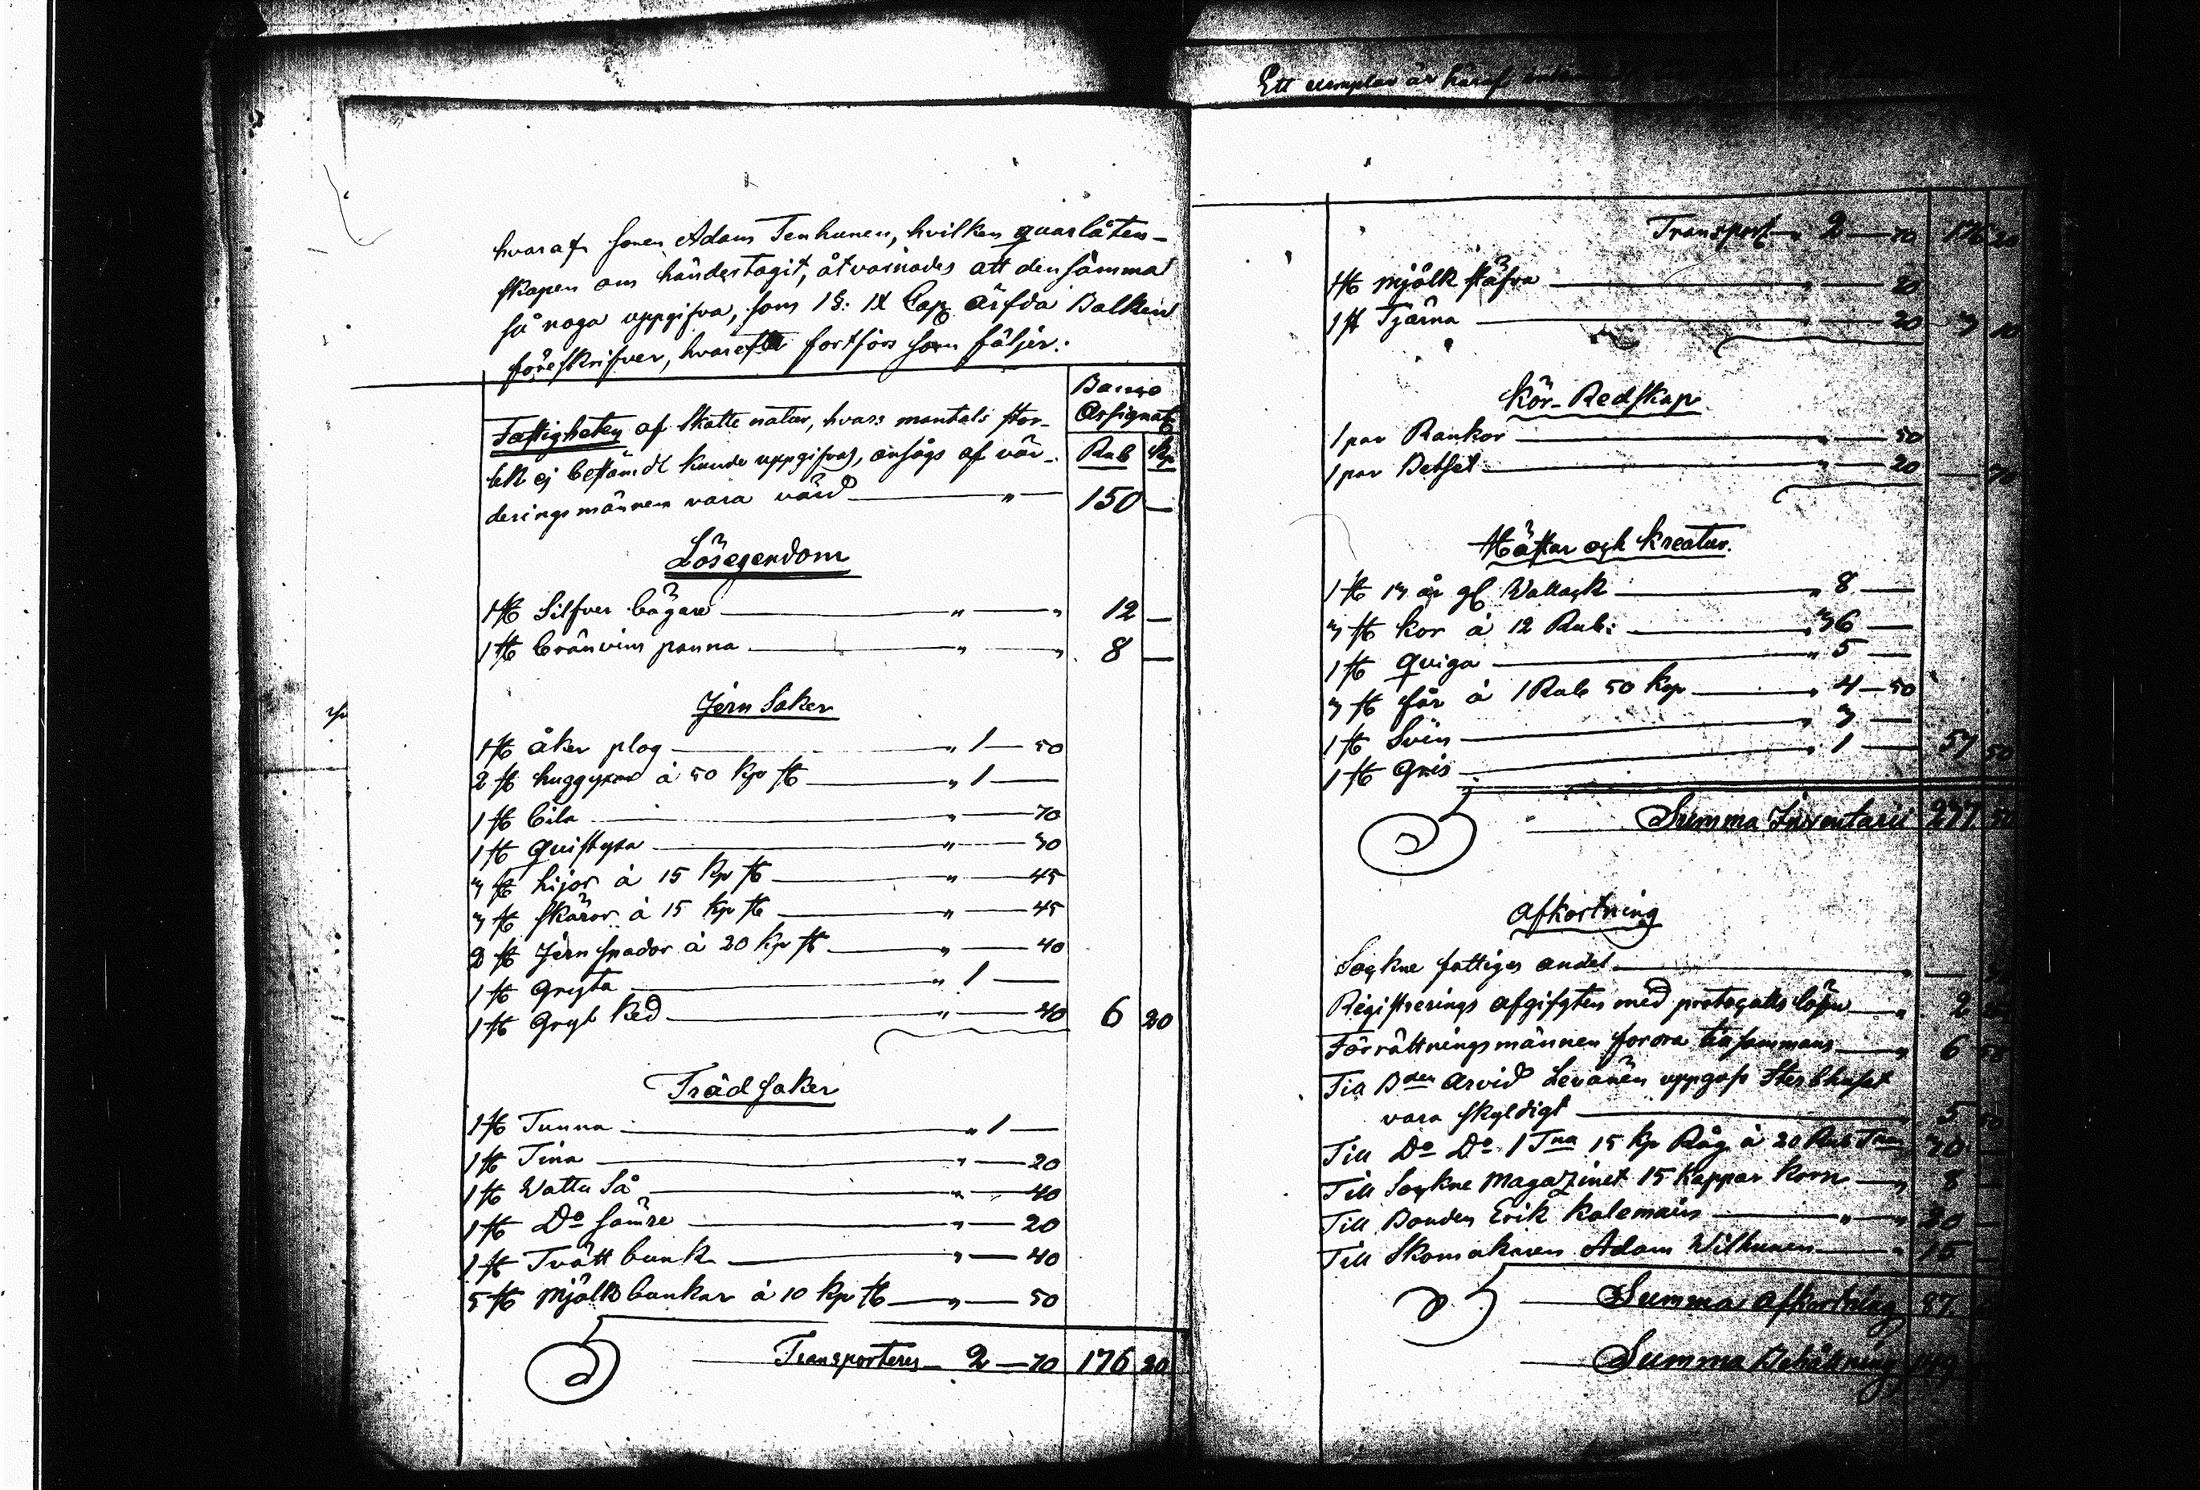 hvaraf sonen Adam Tenhunen, hvilken quarlåten-
skapen om händertagit, åtvarnades att densamma
så noga uppgifva, som 1 §: IX Cap Ärfda Balken
föreskrifver, hvarefter fortfors som följer:
Banco
Assignat
Rub Kp
Fastigheten af Skatte natur, hvars mantals stor-
lek ej bestämdt kunde uppgifvas, ansågs af vär-
deringsmännen vara värd — " — 150 —
Lösegendom
1 st Silfver bägare — " — " 12 —
1 st bränvins panna — " — " 8 —
Jern Saker
1 st åker plog — " 1 — 50
2 st huggyxor à 50 Kp st — " 1 —
1 st bila — " — 70
1 st quistyxa — " — 30
3 st lijor à 15 Kp st — " — 45
3 st skäror à 15 Kp st — " — 45
2 st Jern spador à 20 Kp st — " — 40
1 st Gryta — " 1 —
1 st Gryt Ked — " — 40 6 20
Träd saker
1 st Tunna — " 1 —
1 st Tina — " — 20
1 st Vattu Så — " — 40
1 st Do sämre — " — 20
1 st Tvätt bunk — " — 40
5 st Mjölkbunkar à 10 Kp st — " — 50
Transporteres — 2 — 70 176 20
Ett exemplar är häraf
Transport — " 2 — 70 176 20
1 st mjölk stäfva — " — 20
1 st Tjärna — " — 20 3 10
Kör-Redskap
1 par Rankor — " — 50
1 par Betsel — " — 20 — 70
Hästar och Kreatur.
1 st 13 år gl Vallack — " 8 —
3 st Kor à 12 Rub: — " 36 —
1 st Quiga — " 5 —
3 st får à 1 Rub 50 Kop — " 4 — 50
1 st Svin — " 3 —
1 st Gris — " 1 — 57 50
Summa Inventarii 237 50
Afkortning
Sockne fattiges andel — "
Registrerings afgifgten med protocolls lösen — " 2
Förrättningsmännen forora tilsammans — " 6
Till Bden Arvid Levänen uppgafs Sterbhuset
vara skyldigt — 5
Till Do Do 1 Tna 15 Kp Råg à 20 Rub Tnan 30 —
Till Sockne Magazinet 15 Kappar Korn — " 8 —
Till Bonden Erik Kolemain — " — " 20 —
Till Skomakaren Adam Wilhunen — " 15 —
Summa Afkortning 87
Summa Behållning 149